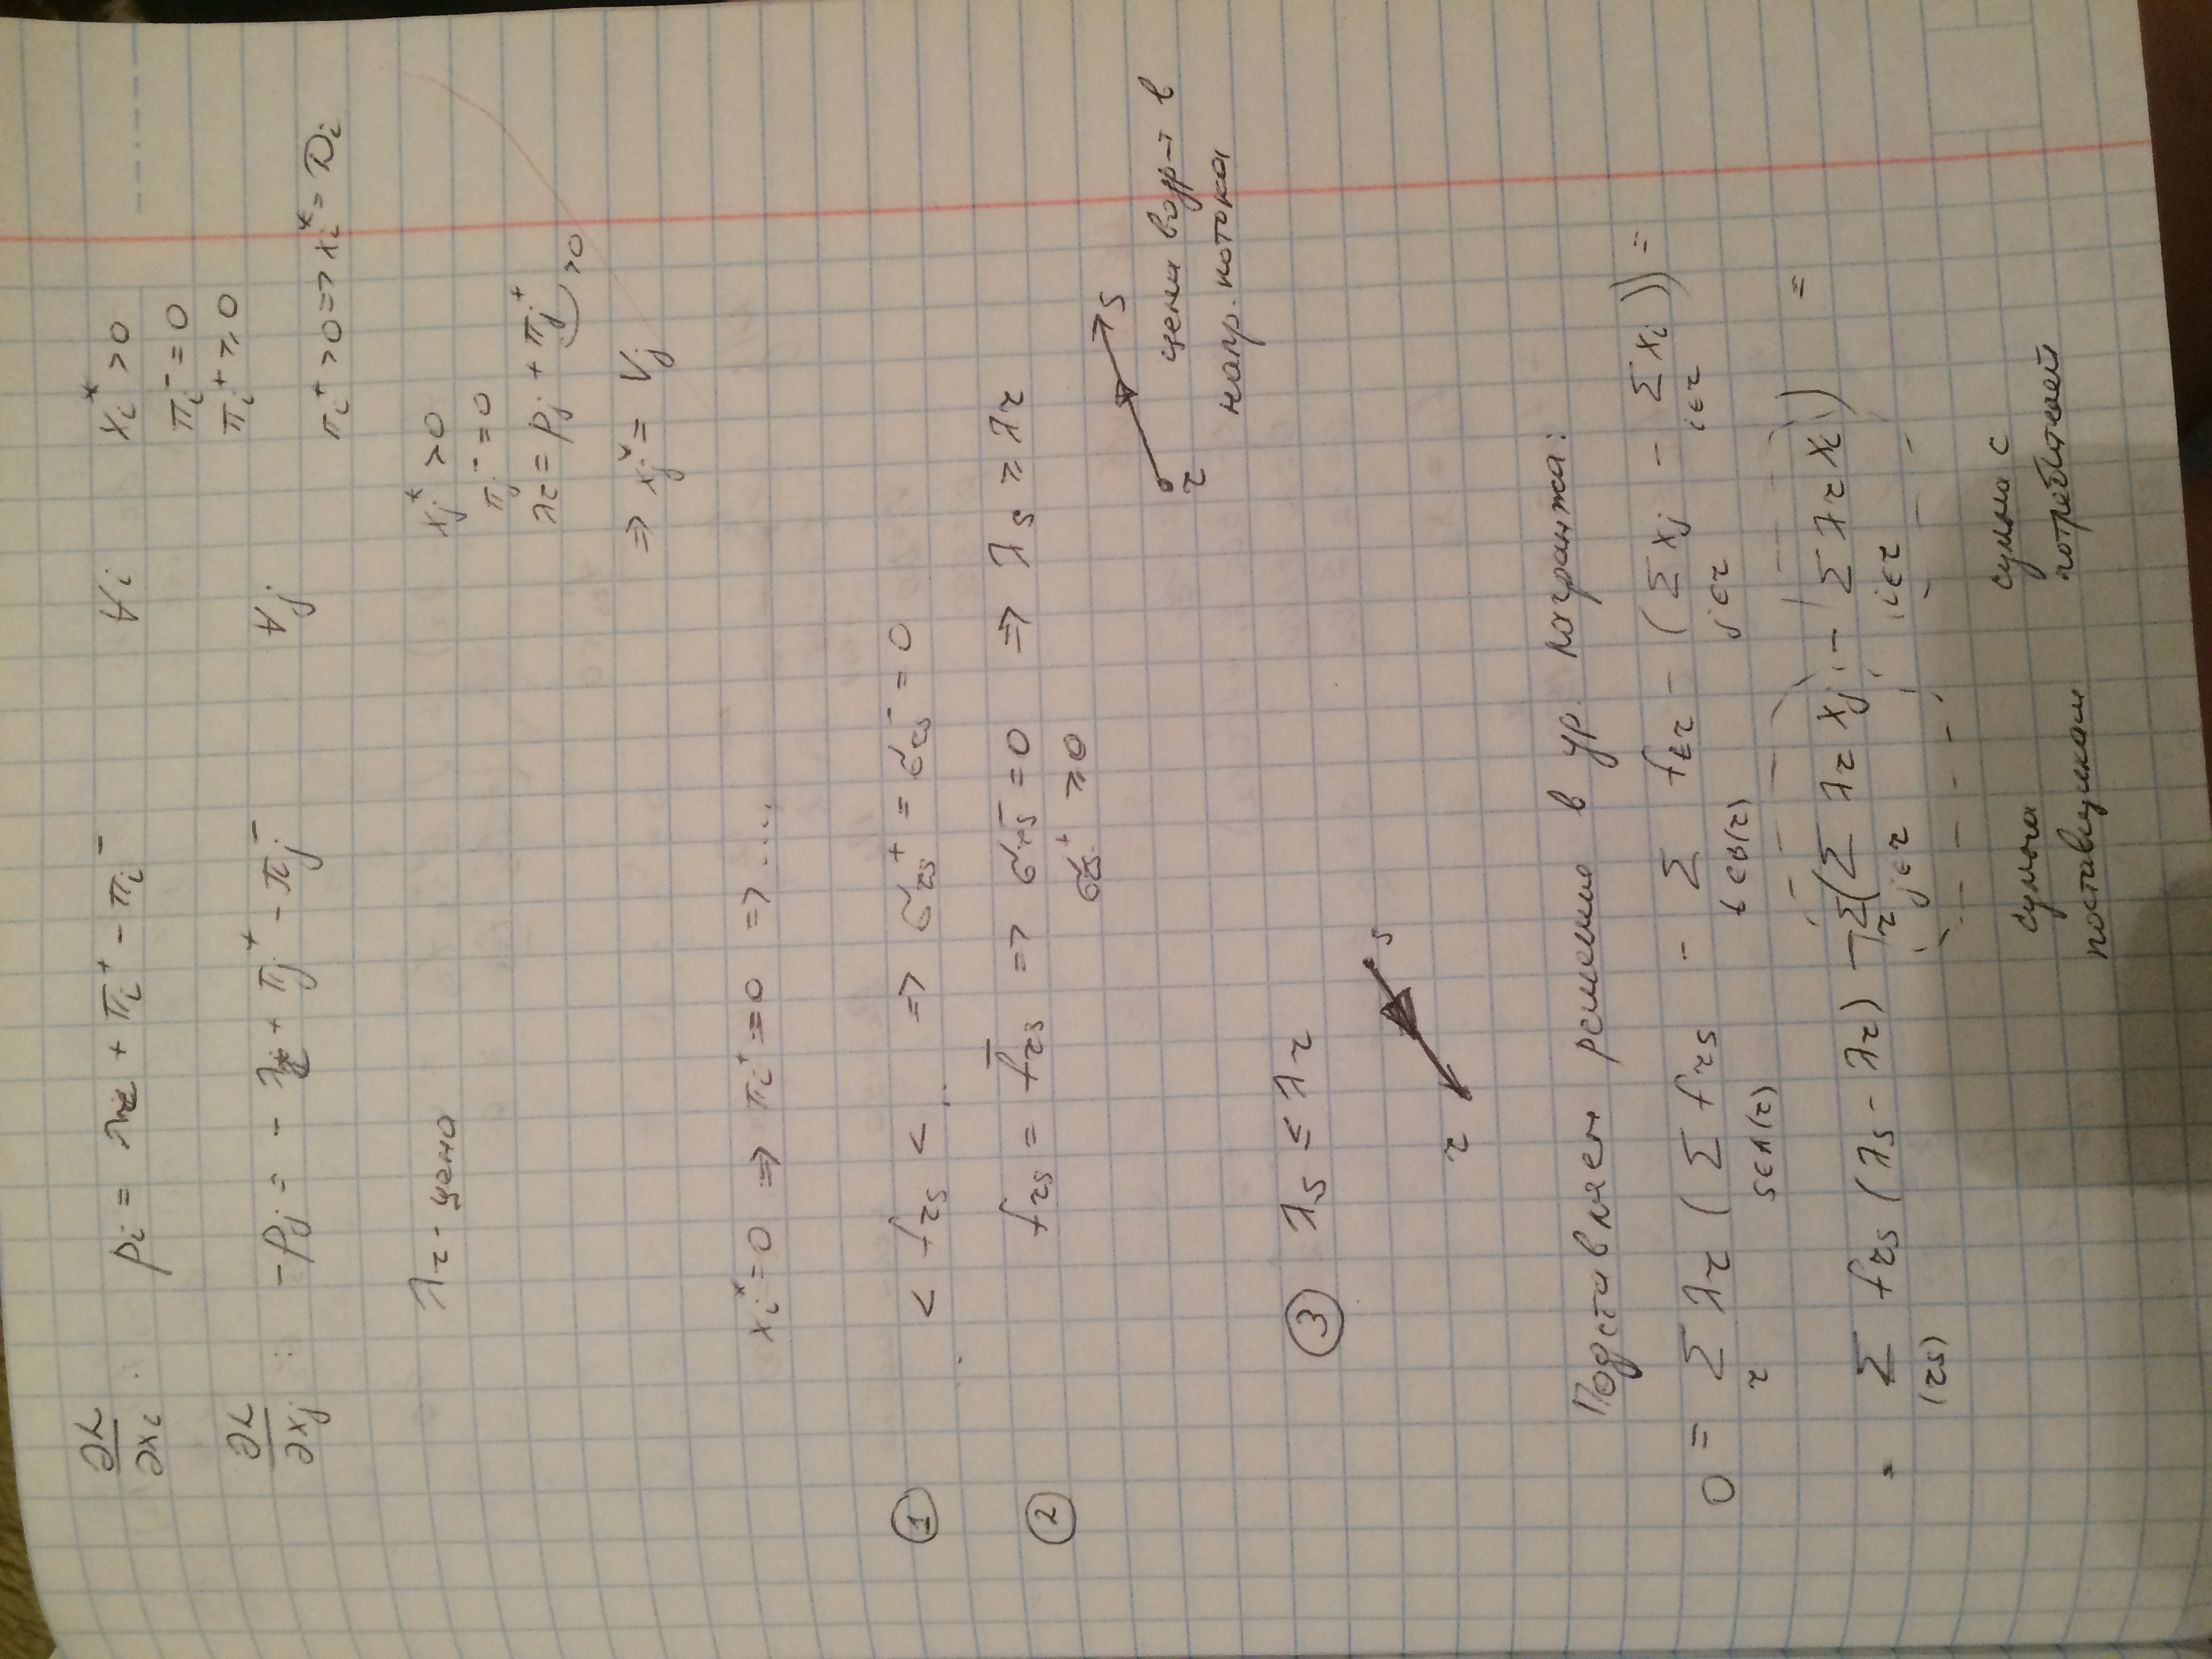 ∂L/∂xᵢ : pᵢ = λ_r + πᵢ⁺ − πᵢ⁻ ∀i xᵢ* > 0
πᵢ⁻ = 0
πᵢ⁺ ⩾ 0
∂L/∂xⱼ : −pⱼ = −λ_r + πⱼ⁺ − πⱼ⁻ ∀j
πᵢ⁺ > 0 => xᵢ* = Dᵢ
λ_r - цена
xⱼ* > 0
πⱼ⁻ = 0
λ_r = pⱼ + πⱼ⁺ > 0
=> xⱼ* = Vⱼ
xᵢ* = 0 => πᵢ⁺ = 0 => ....
① < f_rs < => σ_rs⁺ = σ_rs⁻ = 0
② f_rs = f̅_rs => σ_rs⁻ = 0 => λ_s ⩾ λ_r
σ_rs⁺ ⩾ 0
r s
цена возр-т в
напр. потока
③ λ_s ≤ λ_r
r s
Подставляем решение в ур. лагранжа:
0 = Σ_r λ_r ( Σ_{s∈A(r)} f_rs − Σ_{t∈B(r)} f_tr − ( Σ_{j∈r} xⱼ − Σ_{i∈r} xᵢ )) =
= Σ_(rs) f_rs (λ_s − λ_r) − Σ_r ( Σ_{j∈r} λ_r xⱼ − Σ_{i∈r} λ_r xᵢ ) =
сумма поставщикам
сумма с потребителей